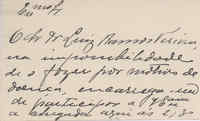 O Sr. Dr. Luiz Ramos Pereira,
na impossibilidade
de o fazer por motivo de
doença, encarrega-me
de participar a V. Exa
a chegada aqui ás 2,30